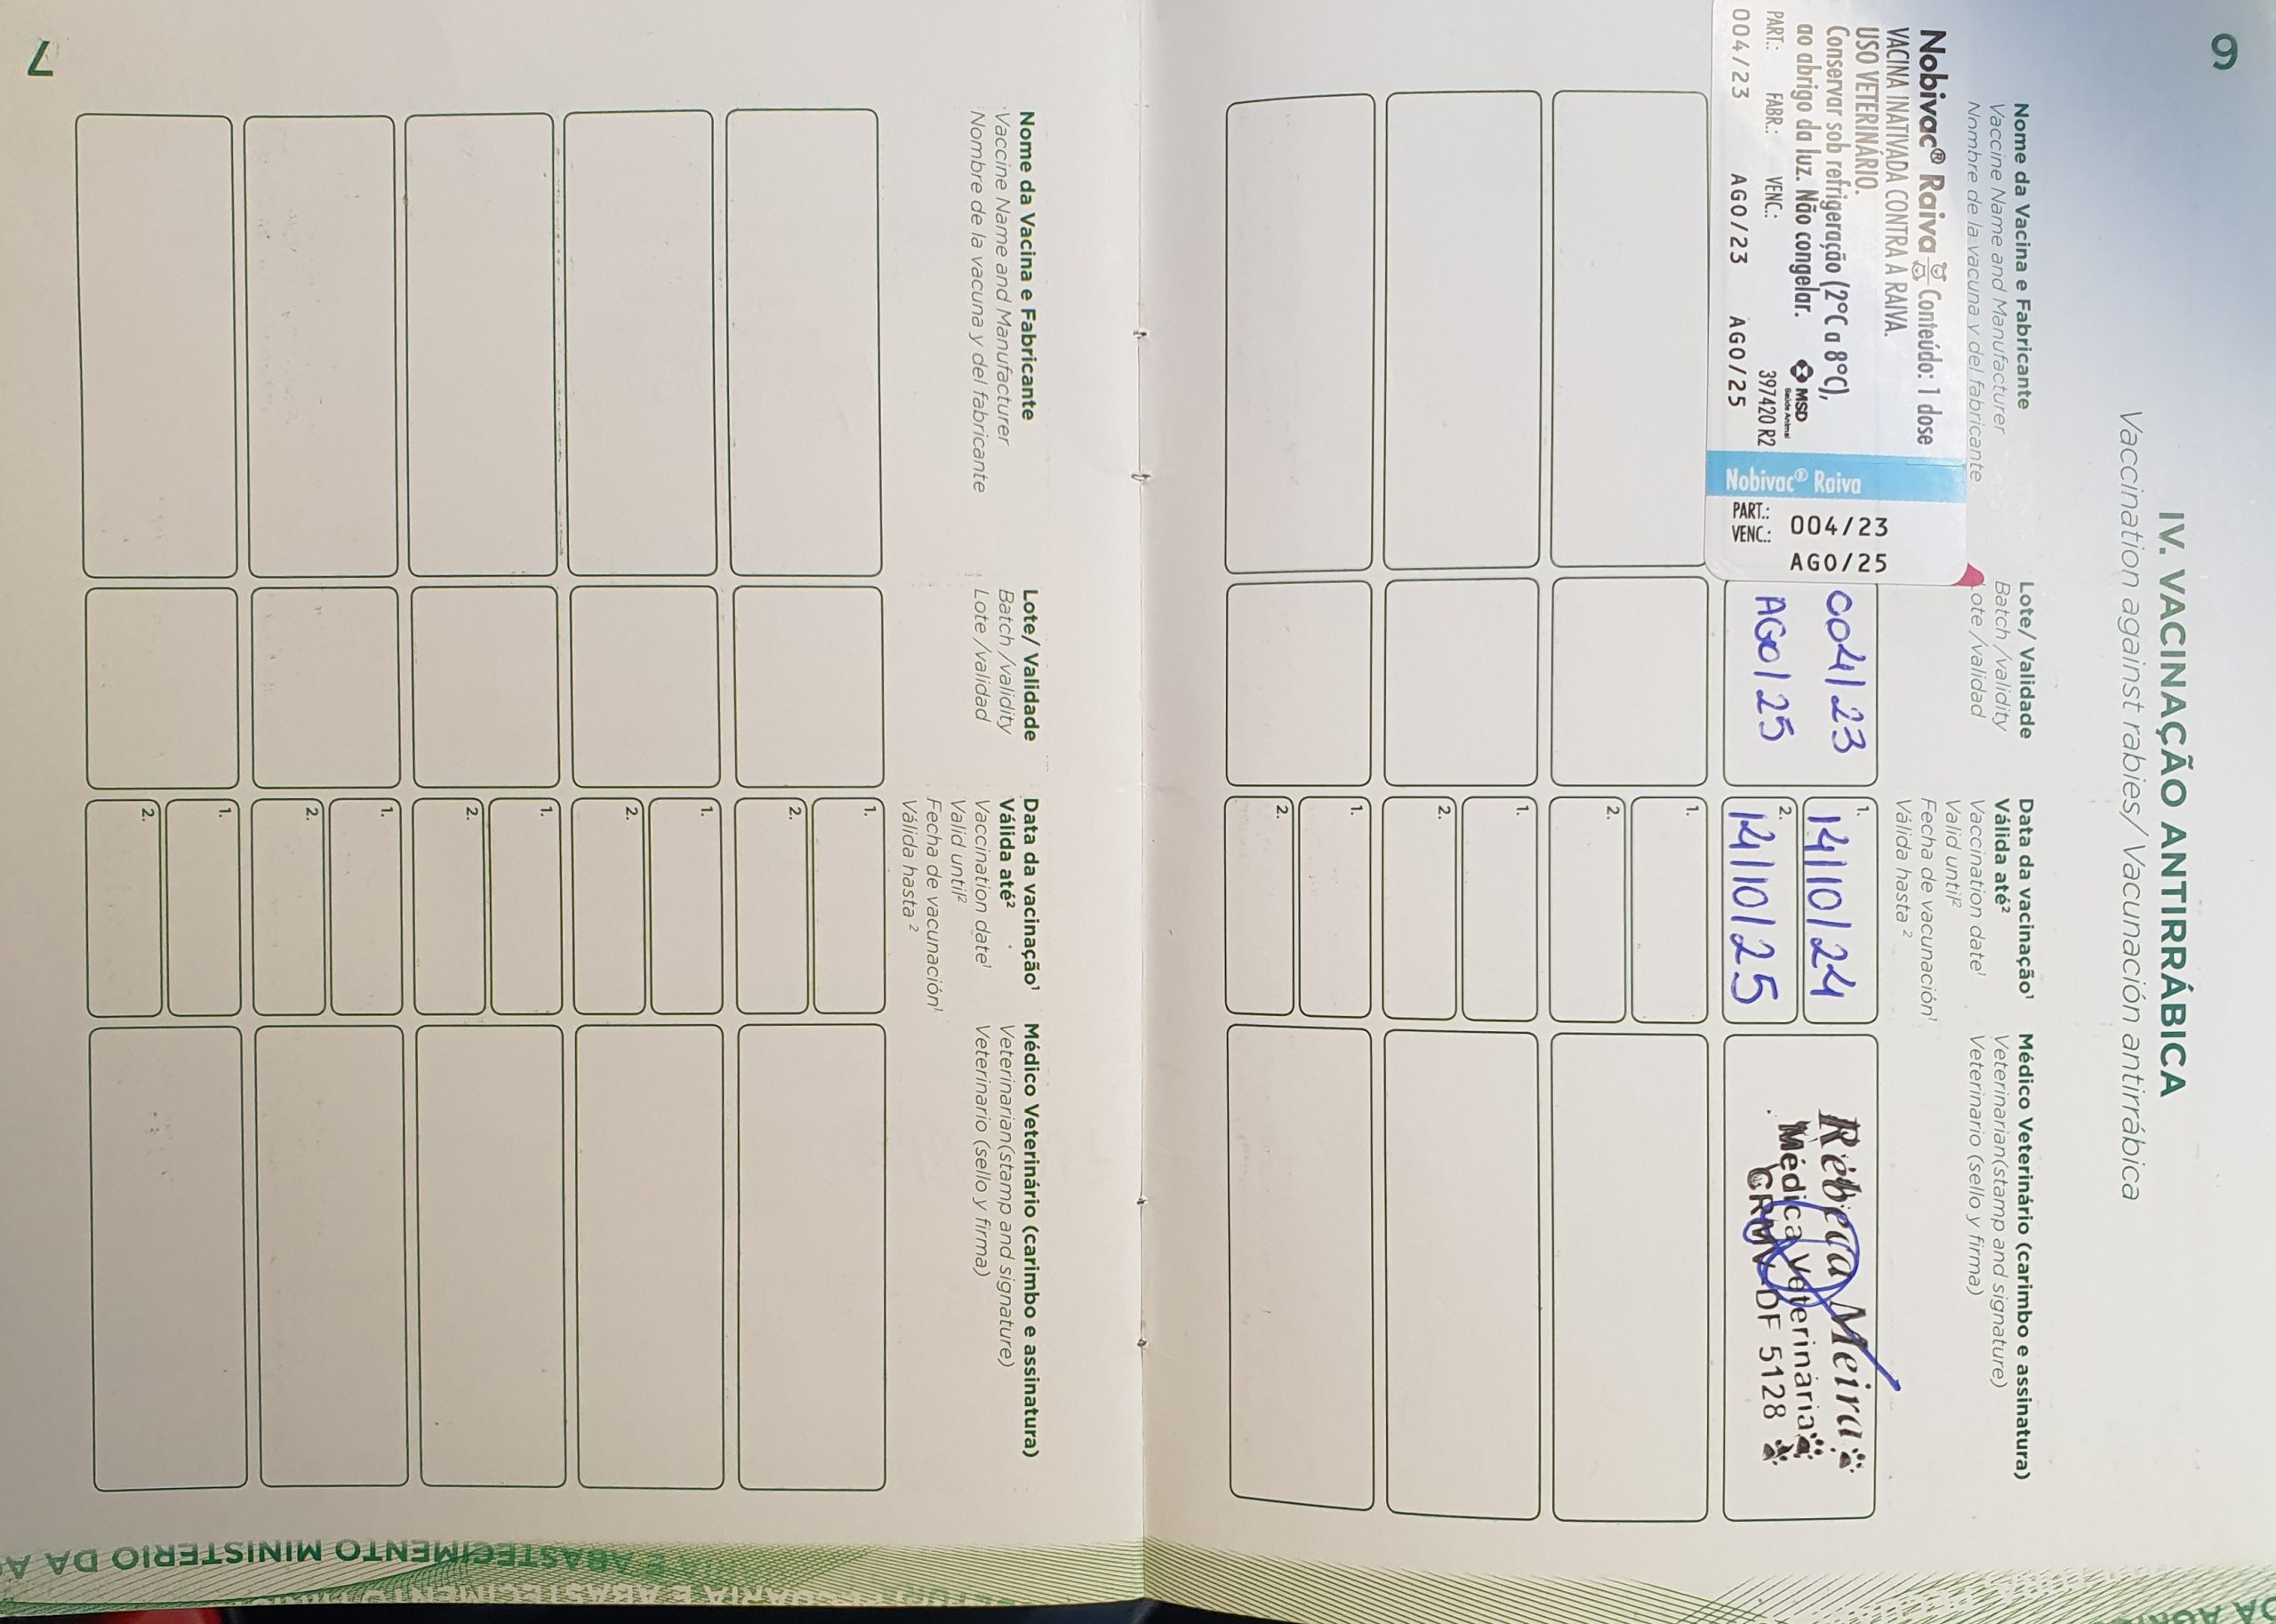 6
IV. VACINAÇÃO ANTIRRÁBICA
Vaccination against rabies/ Vacunación antirrábica
Nome da Vacina e Fabricante
Vaccine Name and Manufacturer
Nombre de la vacuna y del fabricante
Lote/ Validade
Batch /validity
Lote /validad
Data da vacinação¹
Válida até²
Vaccination date¹
Valid until²
Fecha de vacunación¹
Válida hasta ²
Médico Veterinário (carimbo e assinatura)
Veterinarian(stamp and signature)
Veterinario (sello y firma)
Nobivac® Raiva Conteúdo: 1 dose
VACINA INATIVADA CONTRA A RAIVA.
USO VETERINÁRIO.
Conservar sob refrigeração (2°C a 8°C),
ao abrigo da luz. Não congelar.
MSD
Saúde Animal
PART.: FABR.: VENC.: 397420 R2
004/23 AGO/23 AGO/25
Nobivac® Raiva
PART.: 004/23
VENC.: AGO/25
004/23
AGO/25
1. 14/10/24
2. 14/10/25
Rebeca Meira
Médica Veterinária
CRMV-DF 5128
1.
2.
1.
2.
1.
2.
Nome da Vacina e Fabricante
Vaccine Name and Manufacturer
Nombre de la vacuna y del fabricante
Lote/ Validade
Batch /validity
Lote /validad
Data da vacinação¹
Válida até²
Vaccination date¹
Valid until²
Fecha de vacunación¹
Válida hasta ²
Médico Veterinário (carimbo e assinatura)
Veterinarian(stamp and signature)
Veterinario (sello y firma)
1.
2.
1.
2.
1.
2.
1.
2.
1.
2.
7
E ABASTECIMENTO MINISTERIO DA
E ABASTECIMENTO